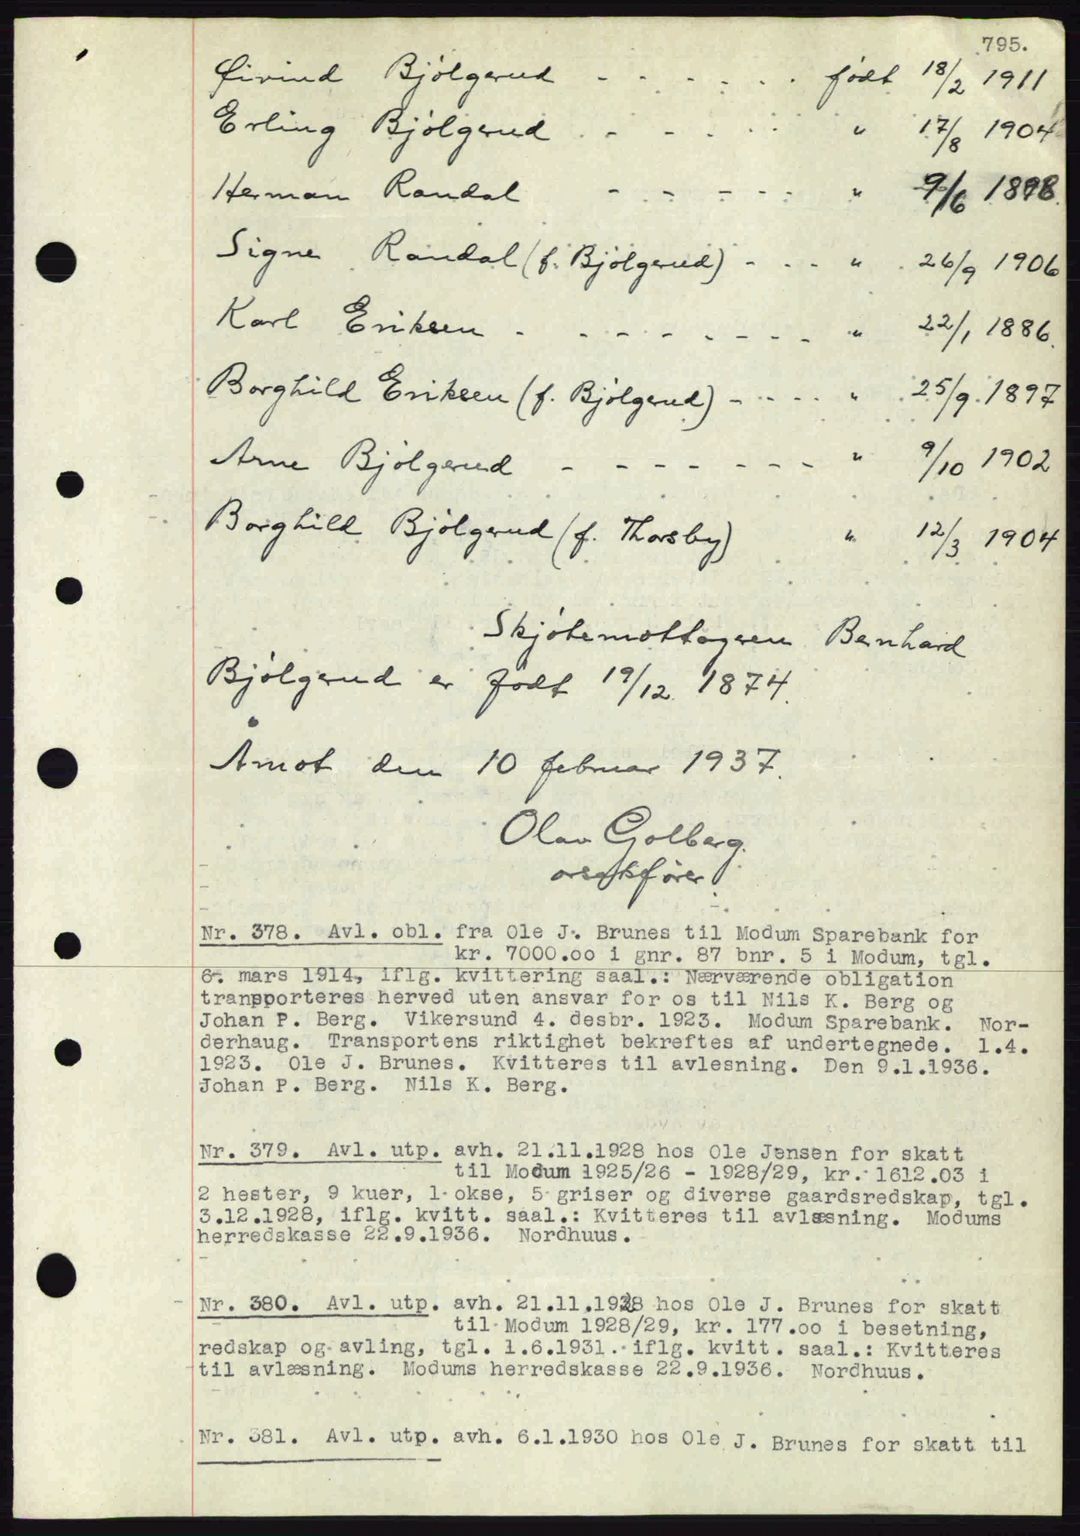 795.
Øivind Bjölgerud - - - - - - - født 18/2 1911
Erling Bjölgerud - - - - - - " 17/8 1904
Herman Randal - - - - - - " 9/6 1898.
Signe Randal (f. Bjölgerud) - - - - " 26/9 1906
Karl Eriksen - - - - - - - - " 22/1 1886.
Borghild Eriksen (f. Bjölgerud) - - - - " 25/9 1897
Arne Bjölgerud - - - - - - - " 9/10 1902
Borghild Bjölgerud (f. Thorsby) " 12/3 1904
Skjötemottageren Bernhard
Bjölgerud er født 19/12 1874.
Åmot den 10 februar 1937.
Olav Golberg.
orsaksfører.
Nr. 378. Avl. obl. fra Ole J. Brunes til Modum Sparebank for
kr. 7000.oo i gnr. 87 bnr. 5 i Modum, tgl.
6. mars 1914, iflg. kvittering saal.: Nærværende obligation
transporteres herved uten ansvar for os til Nils K. Berg og
Johan P. Berg. Vikersund 4. desbr. 1923. Modum Sparebank. Nor-
derhaug. Transportens riktighet bekreftes af undertegnede. 1.4.
1923. Ole J. Brunes. Kvitteres til avlesning. Den 9.1.1936.
Johan P. Berg. Nils K. Berg.
Nr. 379. Avl. utp. avh. 21.11.1928 hos Ole Jensen for skatt
til Modum 1925/26 - 1928/29, kr. 1612.03 i
2 hester, 9 kuer, 1 okse, 5 griser og diverse gaardsredskap, tgl.
3.12.1928, iflg. kvitt. saal.: Kvitteres til avlæsning. Modums
herredskasse 22.9.1936. Nordhuus.
Nr. 380. Avl. utp. avh. 21.11.1928 hos Ole J. Brunes for skatt
til Modum 1928/29, kr. 177.oo i besetning,
redskap og avling, tgl. 1.6.1931. iflg. kvitt. saal.: Kvitteres
til avlæsning. Modums herredskasse 22.9.1936. Nordhuus.
Nr. 381. Avl. utp. avh. 6.1.1930 hos Ole J. Brunes for skatt til